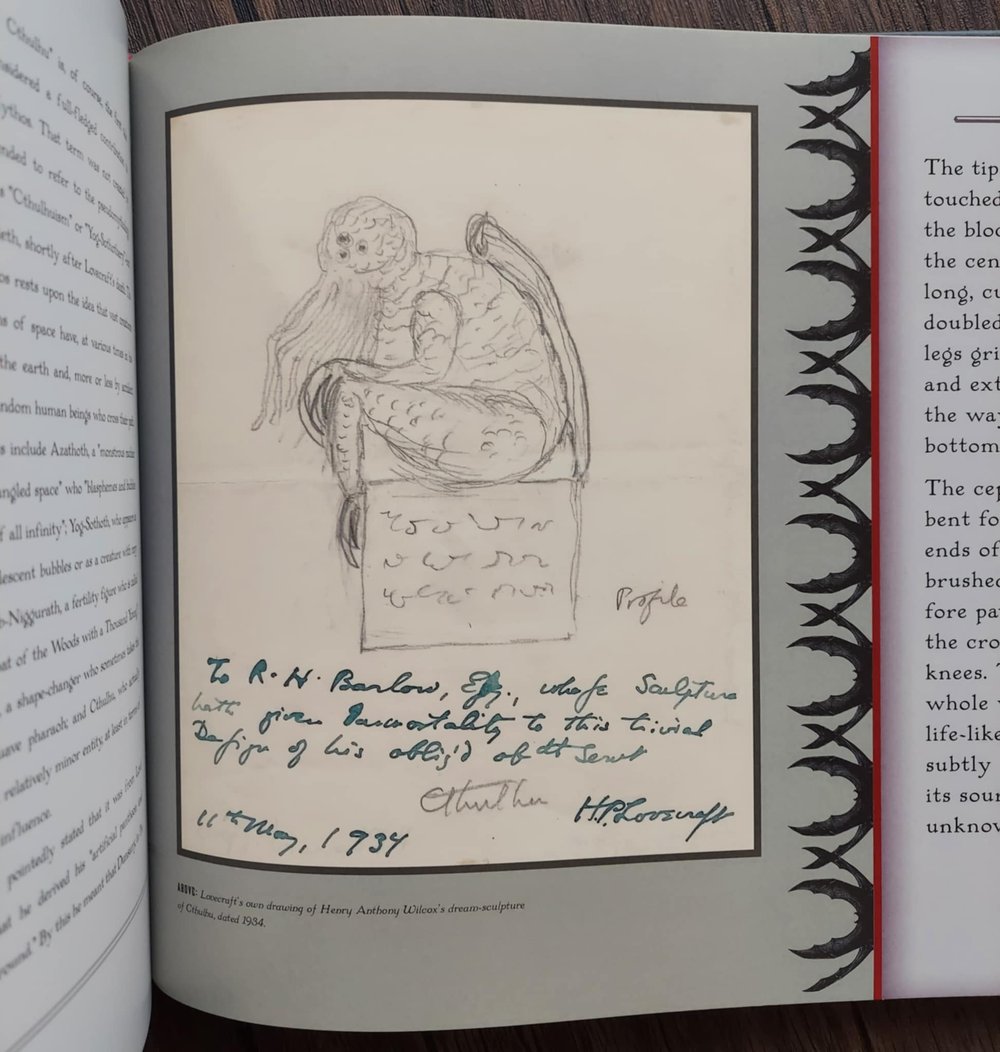 Cthulhu" is, of course, the first
considered a full-fledged
Mythos. That term was not
to refer to the
"Cthulhuism" or "Yog-Sothothery"
shortly after Lovecraft's death.
rests upon the idea that vast
of space have, at various times
the earth and, more or less by
human beings who cross their path.
include Azathoth, a "monstrous
space" who "blasphemes and
of all infinity"; Yog-Sothoth, who
bubbles or as a creature with
a fertility figure who is
of the Woods with a Thousand Young
a shape-changer who sometimes takes
pharaoh; and Cthulhu, who
relatively minor entity, at least in terms of
influence.
pointedly stated that it was from Lord
that he derived his "artificial pantheon
By this he meant that Dunsany's
Profile
To R. H. Barlow, Eſq., whoſe Sculpture
hath given Immortality to this trivial
Deſign of his oblig'd obdt Servt
Cthulhu
H.P. Lovecraft
11th May, 1934
ABOVE: Lovecraft's own drawing of Henry Anthony Wilcox's dream-sculpture
of Cthulhu, dated 1934.
The tip
touched
the bloc
the cen
long, cu
doubled
legs gri
and ext
the way
bottom
The cep
bent fo
ends of
brushed
fore pa
the cro
knees. T
whole
life-like
subtly
its sour
unknow